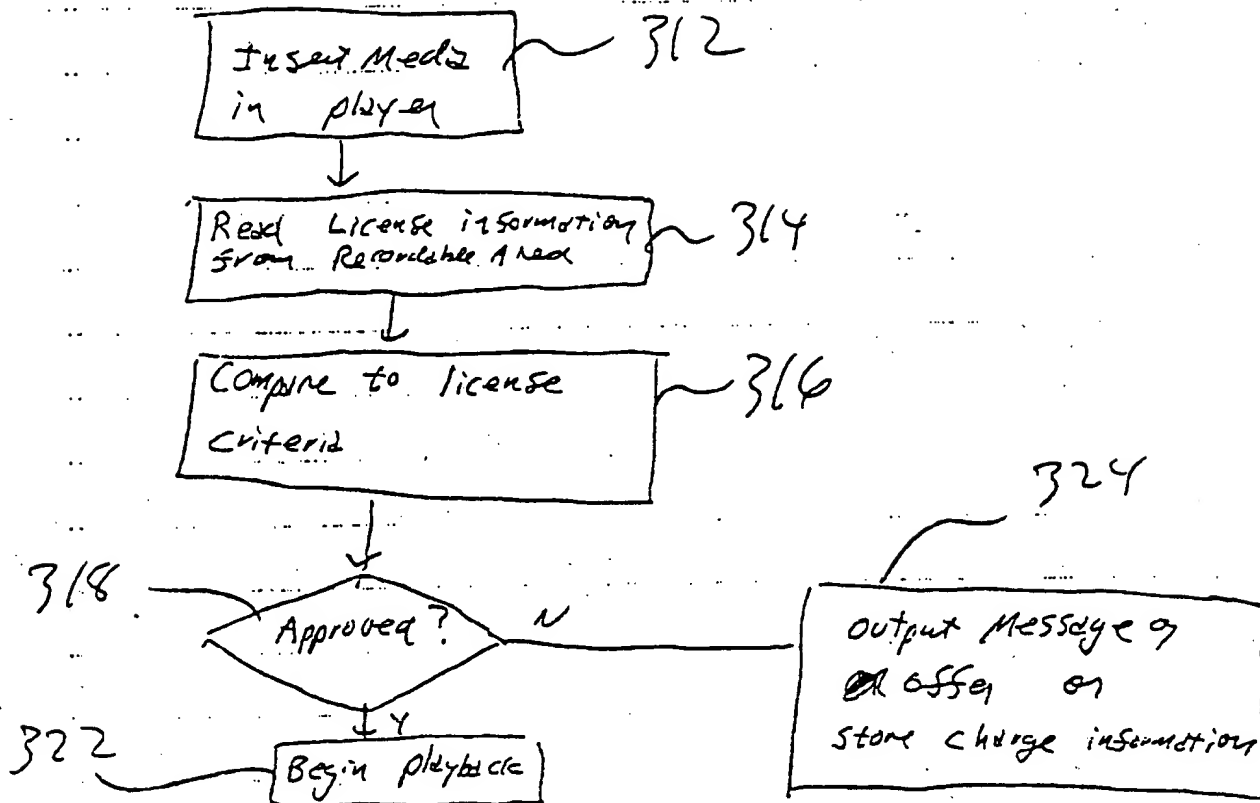 Insert Media
in player
312
Read License information
from Recordable Area
314
Compare to license
criteria
316
324
318
Approved?
N
Output Message or
offer or
store charge information
Y
322
Begin playback